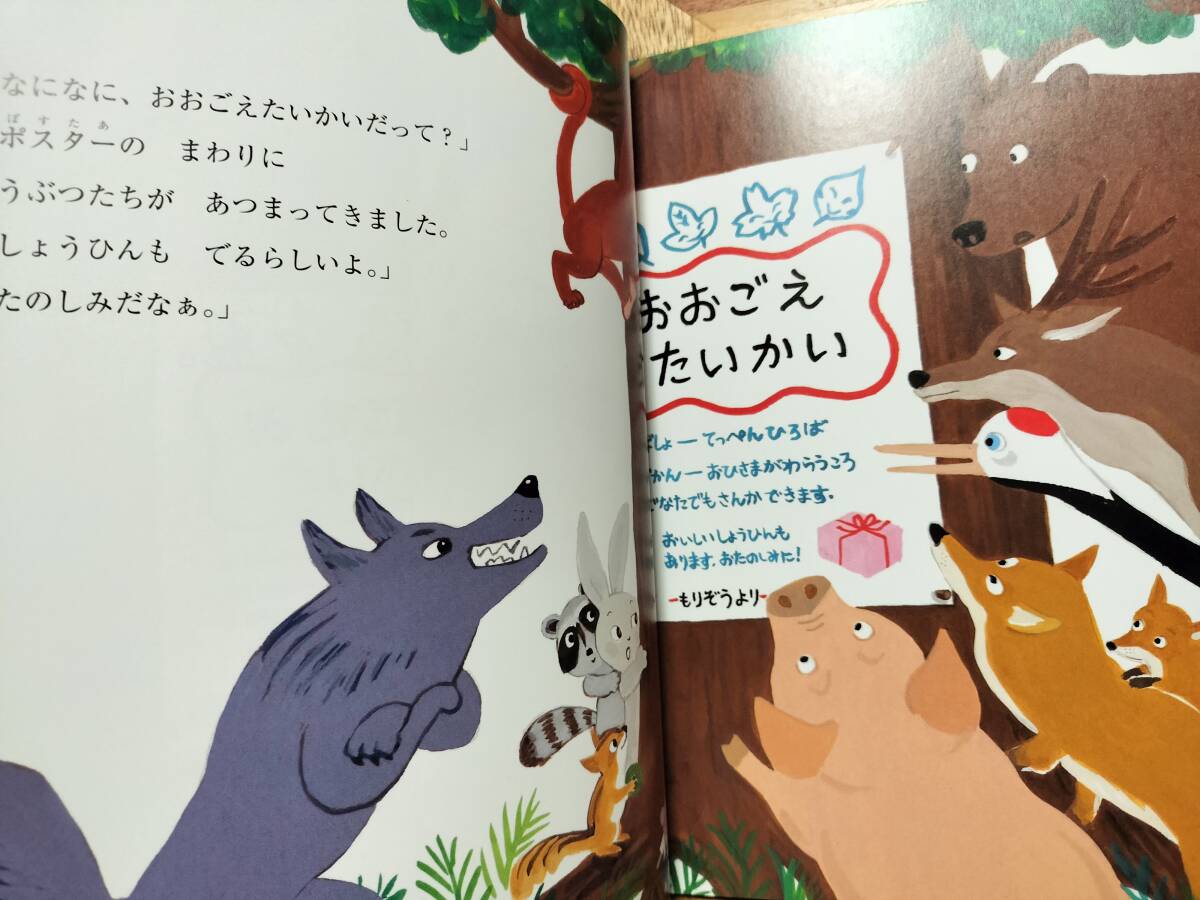 なになに、おおごえたいかいだって？」
ぽすたあ
ポスターの　まわりに
うぶつたちが　あつまってきました。
しょうひんも　でるらしいよ。」
たのしみだなぁ。」
おおごえ
たいかい
ばしょーてっぺんひろば
かんーおひさまがわらうころ
なたでもさんかできます。
おいしいしょうひんも
あります。おたのしみに!
-もりぞうより-